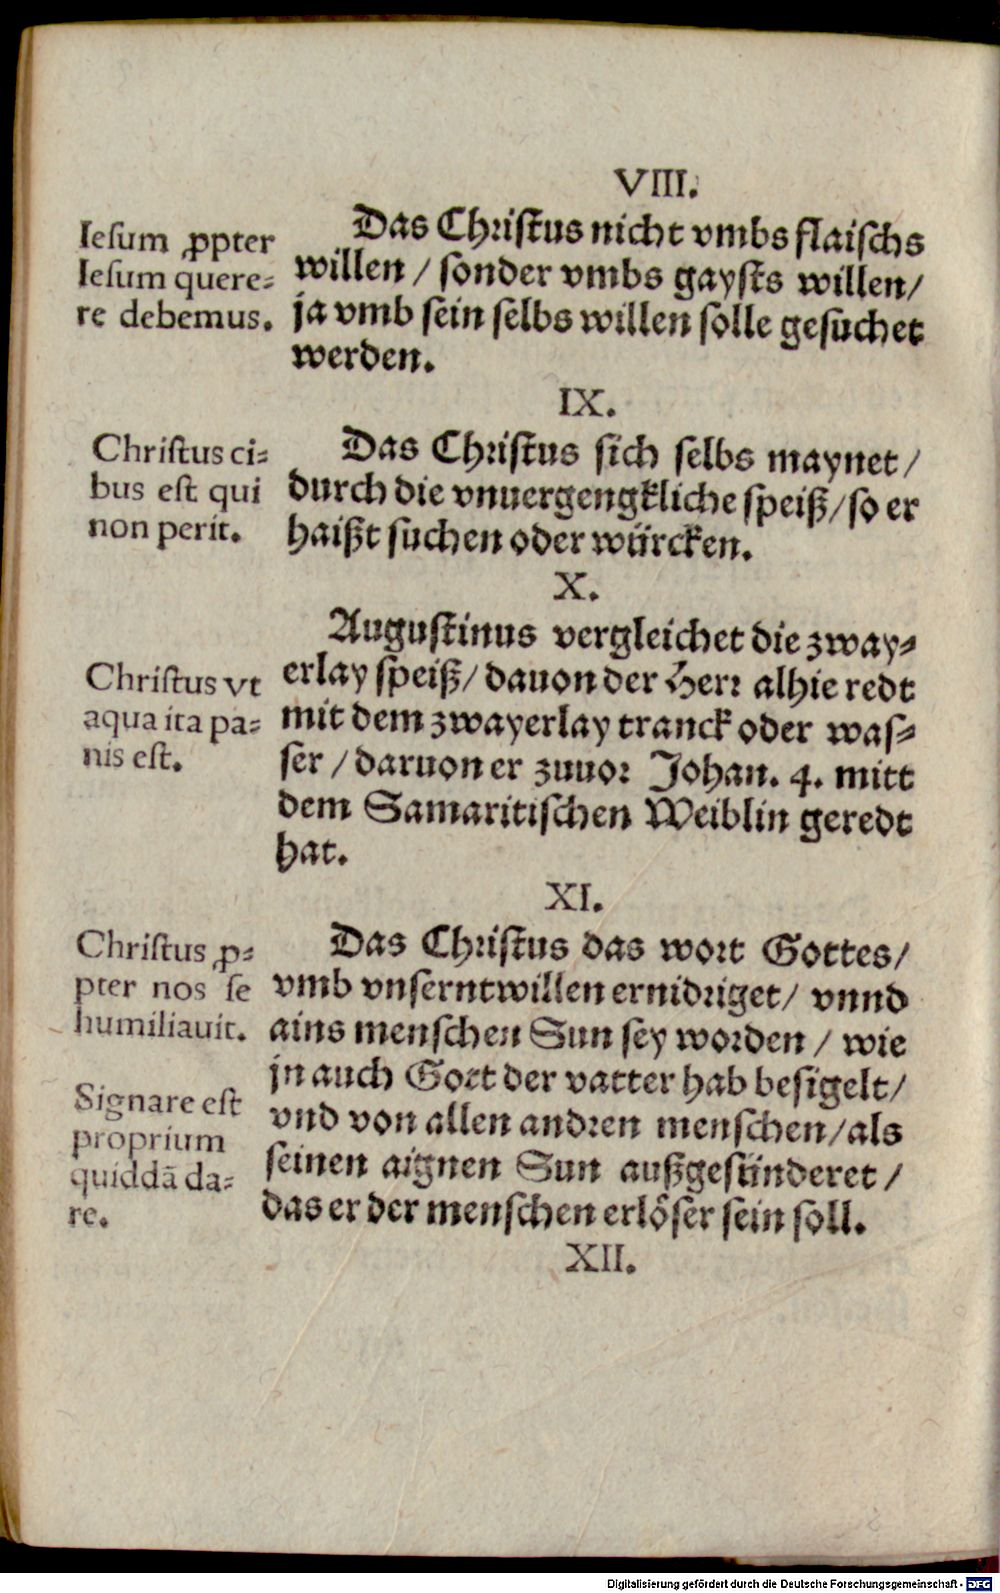 VIII.
Iesum ꝓpter
Iesum quere-
re debemus.
Das Christus nicht vmbs flaischs
willen / sonder vmbs gaysts willen/
ja vmb sein selbs willen solle gesuchet
werden.
IX.
Christus ci-
bus est qui
non perit.
Das Christus sich selbs maynet /
durch die vnuergengkliche speiß/ so er
haißt suchen oder würcken.
X.
Christus vt
aqua ita pa-
nis est.
Augustinus vergleichet die zway-
erlay speiß/ dauon der Herr alhie redt
mit dem zwayerlay tranck oder was-
ser / daruon er zuuor Johan. 4. mitt
dem Samaritischen Weiblin geredt
hat.
XI.
Christus ꝓ-
pter nos se
humiliauit.
Signare est
proprium
quiddā da-
re.
Das Christus das wort Gottes/
vmb vnserntwillen ernidriget/ vnnd
ains menschen Sun sey worden / wie
jn auch Gott der vatter hab besigelt/
vnd von allen andren menschen/als
seinen aignen Sun außgesünderet /
das er der menschen erlöser sein soll.
XII.
Digitalisierung gefördert durch die Deutsche Forschungsgemeinschaft - DFG